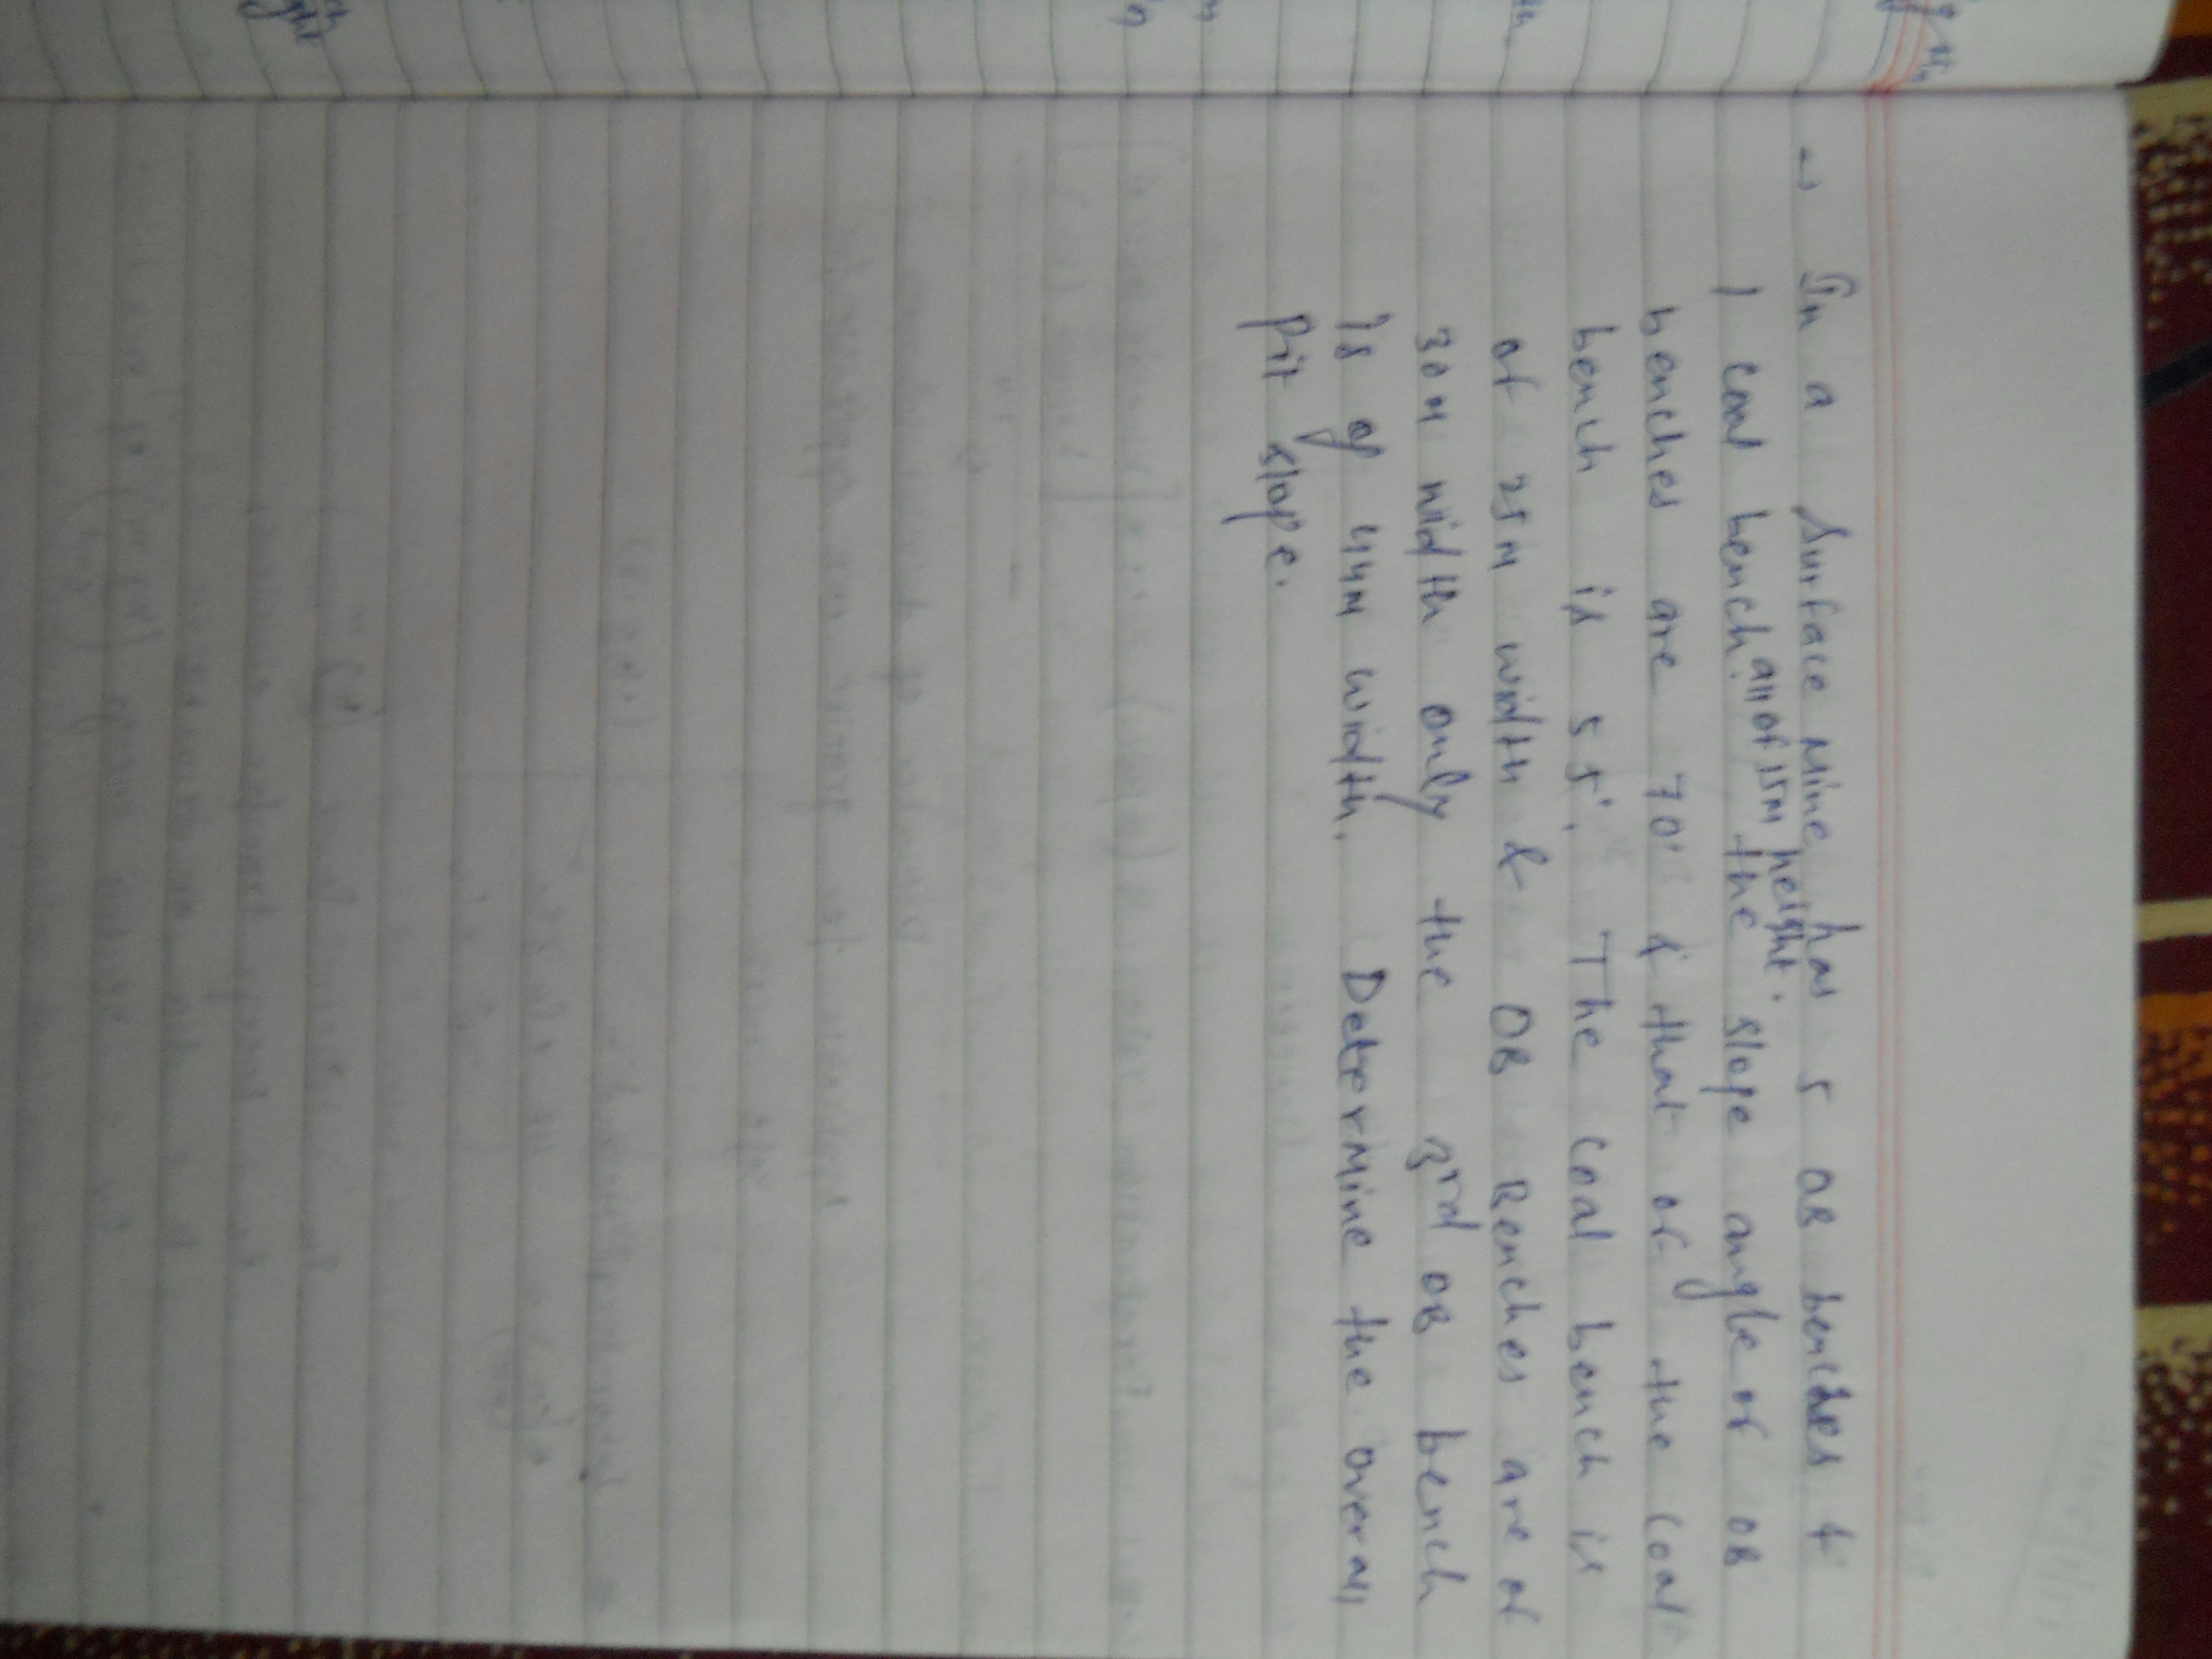 → In a Surface Mine has 5 OB benches &
1 coal bench. all of 15M height. the slope angle of OB
benches are 70° & that of the coal
bench is 55°. The coal bench is
of 25M width & OB Benches are of
30M width only the 3rd OB bench
is of 44M width. Determine the overall
Pit slope.